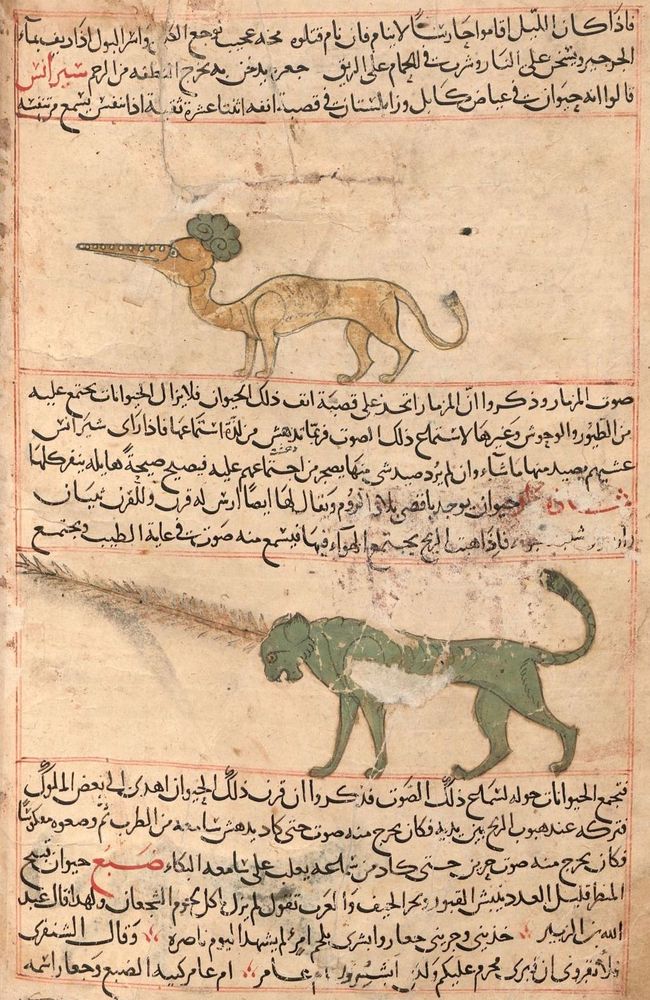 فاذا كان الليل اقاموا حارسًا لا ينام فان نام قتلوه مخه عجيب لوجع واسر البول اذا ديف بماء
الجرجير ويسخن على النار وشرب في الحمام على الريق جعره يدخن به يخرج النطفة من الرحم شيرانس
قالوا انه حيوان في غياض كابل وزابلستان في قصبة انفه اثنتا عشرة ثقبة اذا تنفس يسمع من تنفسه
صوت المزمار وذكروا انّ المزمار اتخذ على قصبة انف ذلك الحيوان فلا يزال الحيوانات يجتمع عليه
من الطيور والوحوش وغيرها لاستماع ذلك الصوت فربما تدهش من لذة استماعها فاذا راى شيرانس
غشيهم يصيد منها ما شاء وان لم يرد صيد شي منها يضجر من اجتماعهم عليه فيصيح صيحة هايلة يتفر كلها
حيوان يوجد باقصى بلاد الروم ويقال لها ايضا ارس له قرن وللقرن
فاذا هبت الريح يجتمع الهواء فيها فيسمع منه صوت في غاية الطيب ويجتمع
فتجمع الحيوانات حوله لسماع ذلك الصوت فذكروا ان قرن ذلك الحيوان اهدى الى بعض الملوك
فتركه عند هبوب الريح بين يديه فكان يخرج منه صوت حتى كاد يدهش سامعه من الطرب ثم وضعوه معكوسًا
فكان يخرج منه صوت حزين حتى كاد من سماعه يغلب على سامعه البكاء ضبع حيوان قبيح
المنظر قليل العدد ينبش القبور ويجر الجيف والعرب تقول لم يزل ياكل لحوم الشجعان ولهذا قال عبد
الله بن الزبير خذيني وجريني جعار وابشري بلحم امرئ لم يشهد اليوم ناصره وقال الشنفرى
فلا تقبروني ان قبري محرم عليكم ولكن ابشروا ام عامر ام عامر كنية الضبع وجعار اسمه